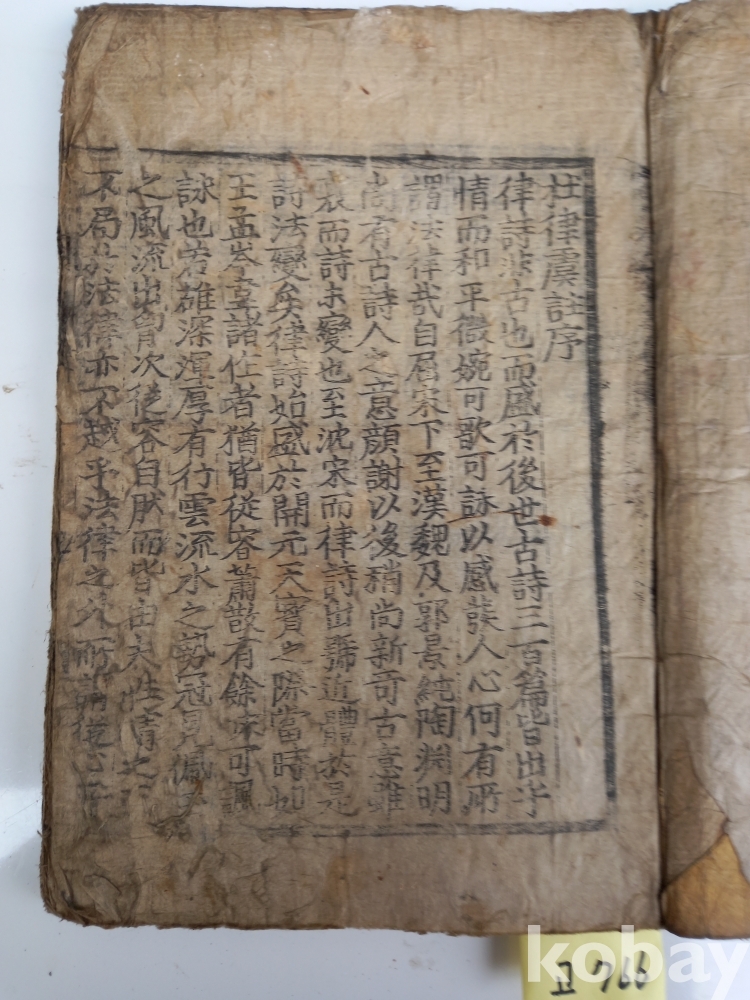 杜律虞註序
律詩非古也而盛於後世古詩三百篇皆出乎
情而和平微婉可歌可詠以感發人心何有所
謂法律哉自屈宋下至漢魏及郭景純陶淵明
尚有古詩人之意顔謝以後稍尚新奇古意雖
衰而詩未變也至沈宋而律詩出號近體於是
詩法變矣律詩始盛於開元天寶之際當時如
王孟岑韋諸作者猶皆從容蕭散有餘味可諷
詠也若雄深渾厚有行雲流水之勢冠冕佩
之風流出胷次從容自然而皆由夫性情之
不局於法律亦不越乎法律之外所謂從心
고766
kobay